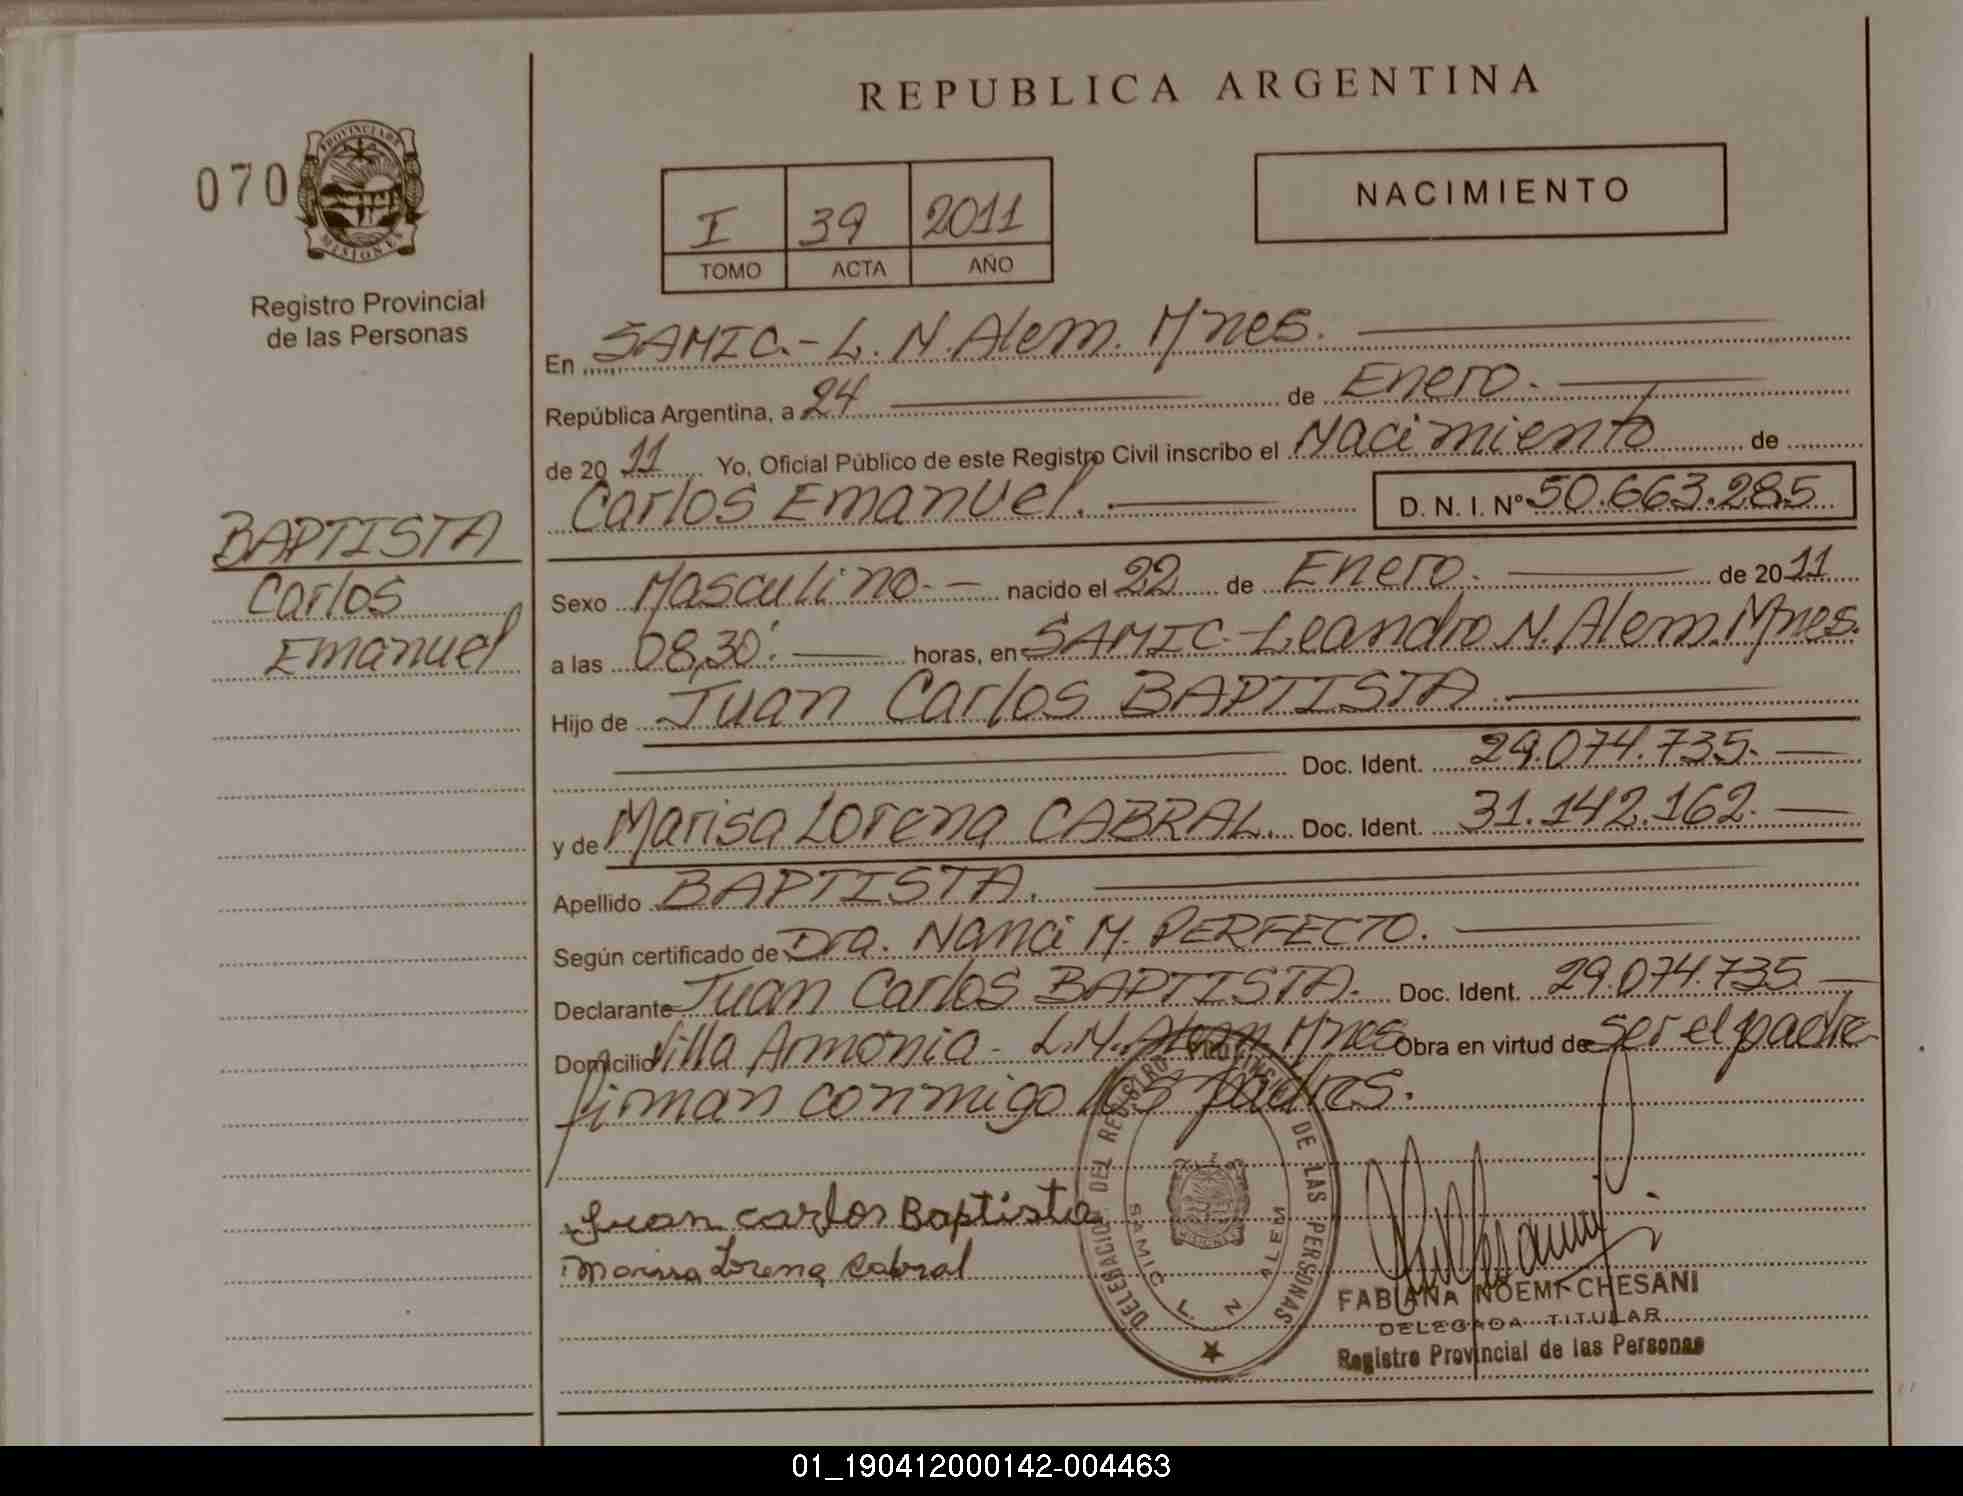 REPUBLICA ARGENTINA
070
PROVINCIA DE
MISIONES
Registro Provincial
de las Personas
I 39 2011
TOMO ACTA AÑO
NACIMIENTO
En SAMIC.- L. N. Alem. Mnes.
República Argentina, a 24 de Enero.
de 20 11 Yo, Oficial Público de este Registro Civil inscribo el Nacimiento de
Carlos Emanuel. D. N. I. N° 50.663.285
BAPTISTA
Carlos
Emanuel
Sexo Masculino.- nacido el 22 de Enero. de 20 11
a las 08,30'. horas, en SAMIC.-Leandro N. Alem. Mnes.
Hijo de Juan Carlos BAPTISTA.
Doc. Ident. 29.074.735.
y de Marisa Lorena CABRAL. Doc. Ident. 31.142.162.
Apellido BAPTISTA.
Según certificado de Dra. Nanci M. PERFECTO.
Declarante Juan Carlos BAPTISTA. Doc. Ident. 29.074.735
Domicilio Villa Armonia - L.N. Alem. Mnes Obra en virtud de ser el padre
firman conmigo los padres.
Juan carlos Baptista
Marisa Lorena Cabral
DELEGACION DEL REGISTRO PROVINCIAL DE LAS PERSONAS
SAMIC L. N. ALEM
FABIANA NOEMI CHESANI
DELEGADA TITULAR
Registro Provincial de las Personas
01_190412000142-004463